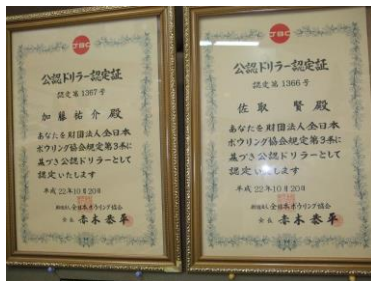 JBC
公認ドリラー認定証
認定第1367号
加藤祐介 殿
あなたを財団法人全日本
ボウリング協会規定第3条に
基づき公認ドリラーとして
認定いたします
平成22年10月20日
財団法人 全日本ボウリング協会
会長 赤木恭平
JBC
公認ドリラー認定証
認定第1366号
佐取 賢 殿
あなたを財団法人全日本
ボウリング協会規定第3条に
基づき公認ドリラーとして
認定いたします
平成22年10月20日
財団法人 全日本ボウリング協会
会長 赤木恭平